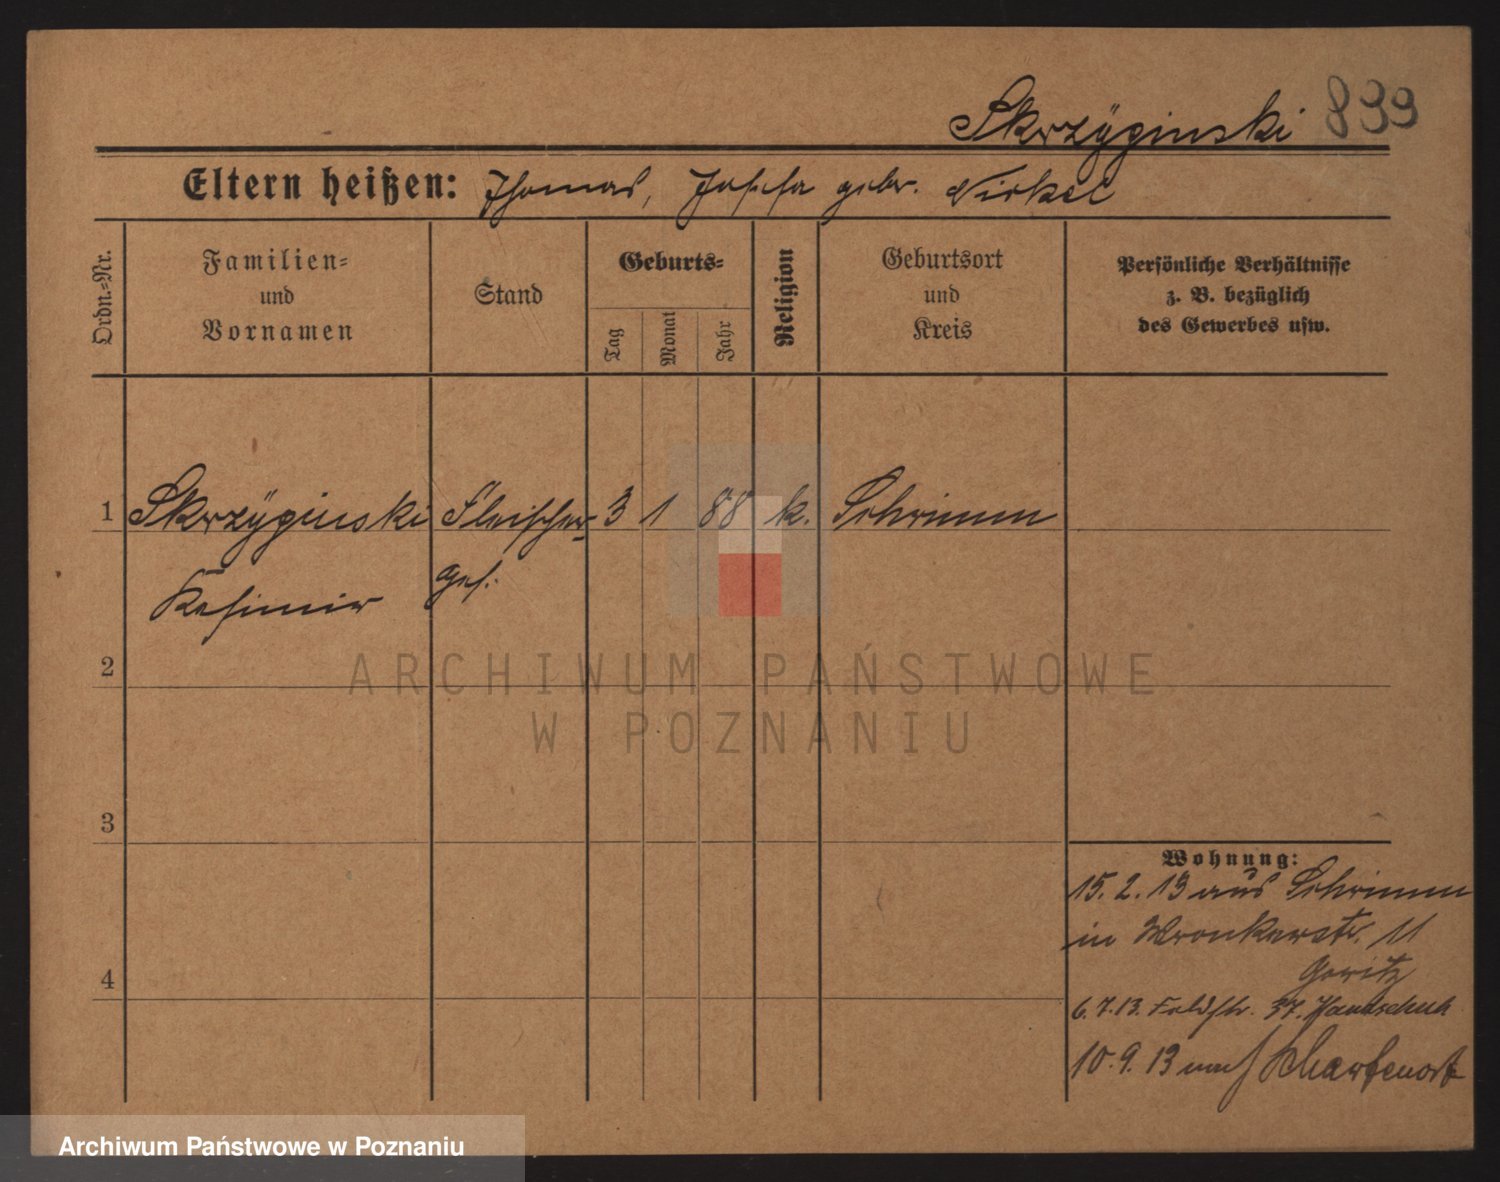 Skrzÿginski 899
Eltern heißen: Thomas, Josefa gebr. Nirkel
Ordn.-Nr.
Familien-
und
Vornamen
Stand
Geburts-
Tag
Monat
Jahr
Religion
Geburtsort
und
Kreis
Persönliche Verhältnisse
z. B. bezüglich
des Gewerbes usw.
1 Skrzÿginski Fleischer- 3 1 88 k. Schrimm
Kasimir ges.
2
ARCHIWUM PAŃSTWOWE
W POZNANIU
3
Wohnung:
15. 2. 13 aus Schrimm
in Wronkerstr. 11
Goritz
6. 7. 13. Feldstr. 37. Handschuh
10. 9. 13 nach Scharfenort
4
Archiwum Państwowe w Poznaniu